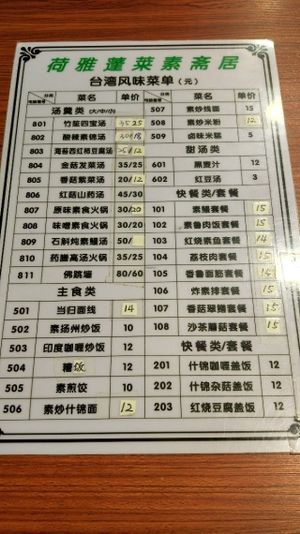 荷雅蓬莱素斋居
台湾风味菜单（元）
电脑编号 分类 菜名 单价
汤羹类 (大/中/小)
801 竹笙四宝汤 35/25
802 酸辣素锦汤
803 海苔西红柿豆腐汤
804 金菇发菜汤 35/25
805 香菇紫菜汤 35/20
806 红菇山药汤 45/30
807 原味素食火锅 30/20
808 味噌素食火锅 30/20
809 石斛炖素鳗汤 50/
810 药膳高汤火锅 35/25
811 佛跳墙 80/60
主食类
501 当归面线 14
502 素扬州炒饭 10
503 印度咖喱炒饭 10
504 饭 10
505 素煎饺 10
506 素炒什锦面 12
电脑编号 分类 菜名 单价
507 素炒线面 15
508 素炒米粉 12
509 卤味米糕 5
甜汤类
601 黑麦汁 12
602 红豆汤 3
快餐类/套餐
101 素鳗套餐 15
102 素鲁肉饭套餐 15
103 红烧素鱼套餐 14
104 荔枝肉套餐 15
105 香鲁面筋套餐 14
106 炸素排套餐 15
107 香菇翠搠套餐 15
108 沙茶蘑菇套餐 15
快餐类/套餐
201 什锦咖喱盖饭 12
202 什锦杂菇盖饭 12
203 红烧豆腐盖饭 12